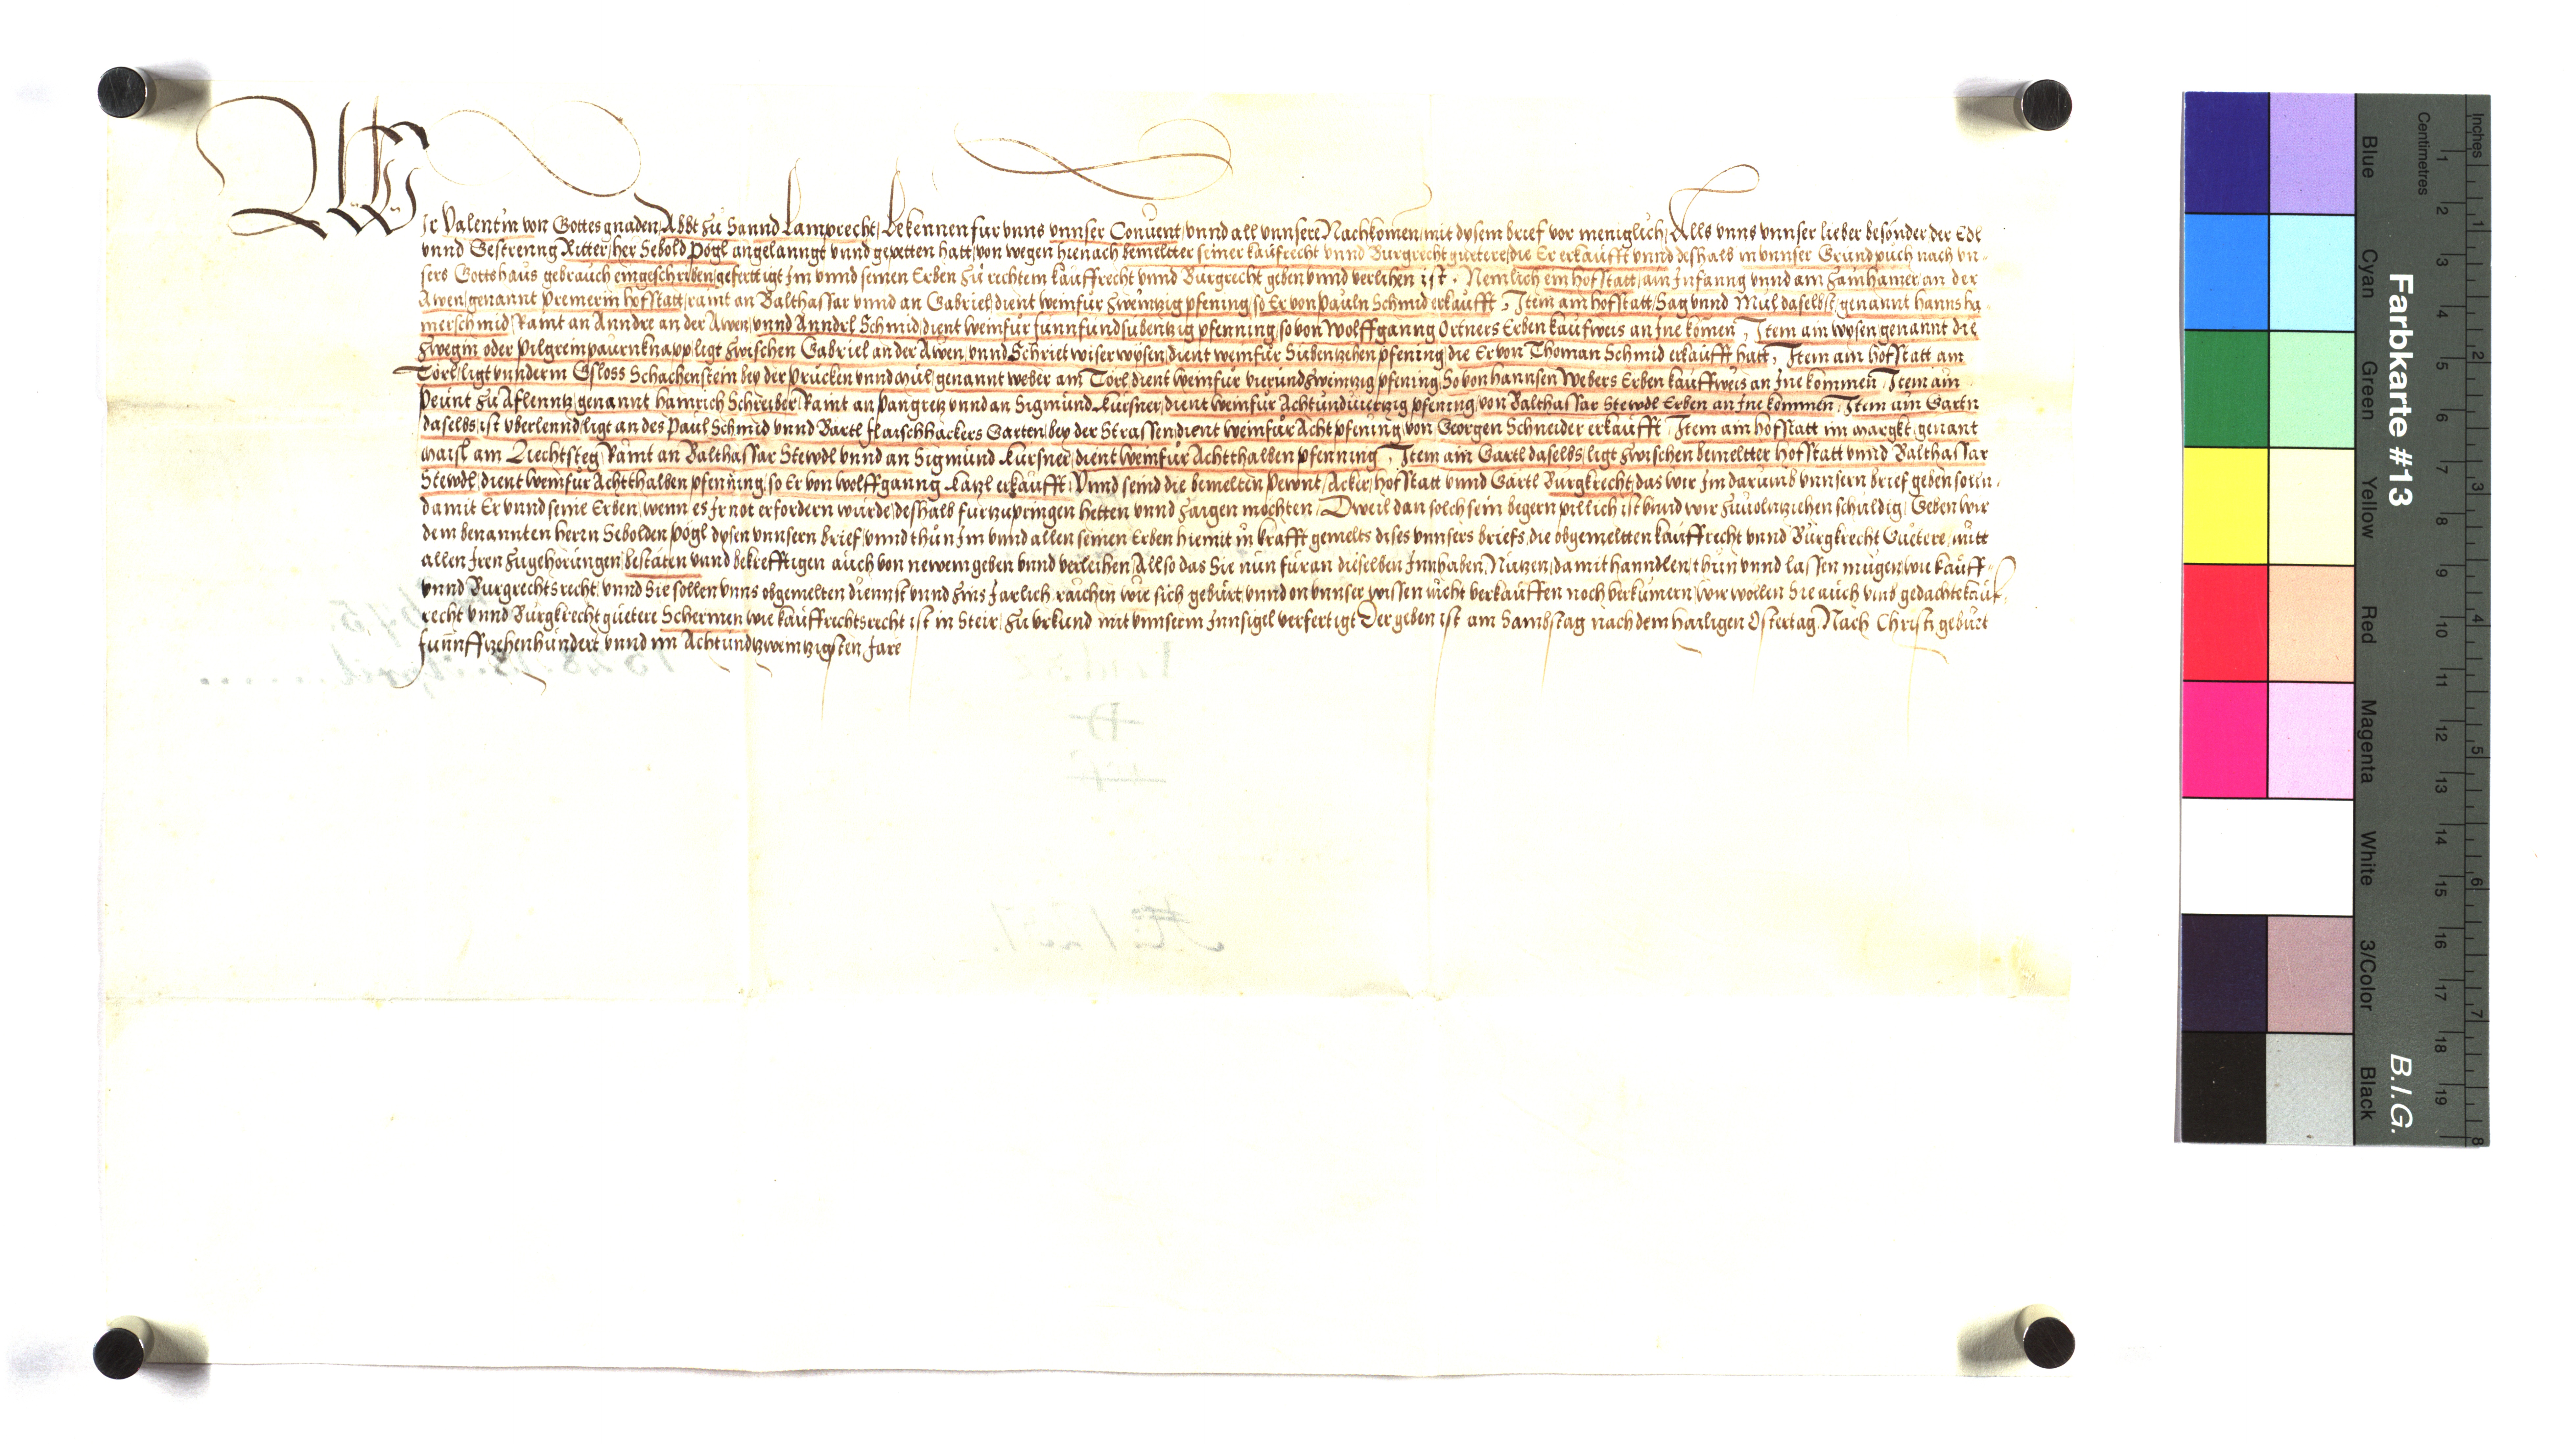 Wir Valentin von Gottes gnaden Abbt zu Sannd Lamprecht, Bekennen fur vnns vnnser Conuent, vnnd all vnnsere Nachkomen, mit dysem brief vor meniglich, Alls vnns vnnser lieber besonder der Edl
vnnd Gestrenng Ritter, her Sebold Pögl angelanngt vnnd gepetten hatt, von wegen hienach bemeltter seiner kaufrecht vnnd Burgrecht guetere, die Er erkaufft vnnd deshalb in vnnser Grundpuch nach vn-
sers Gottshaus gebrauch eingeschriben, gefertigt Im vnnd seinen Erben zu rechtem kauffrecht vnnd Burgrecht geben vnnd verlihen ist. Nemlich ein hofstatt, am Infanng vnnd am hamer, an der
Awen, genannt Premerin hofstatt, ramt an Balthassar vnnd an Gabriel, dient weinfür zweinzig pfening, so Er von Pauln Schmid erkaufft, Item ain hofstatt, Sag vnnd Mül daselbst, genannt hanns ha-
merschmid, Ramt an Anndre an der Awen, vnnd Anndrl Schmid, dient weinfür funnfundsubentzig pfenning, so von Wolffganng Ortners Erben kaufweis an Ine komen, Item ain wysen genannt die
Zwegin oder Pilgreimpaurnknapp, ligt zwischen Gabriel an der Awen, vnnd Schriet wiser wysen, dient weinfür Subentzehen pfening, die Er von Thoman Schmid erkaufft hatt, Item ain hofstatt am
Törl, ligt vnnderm Gsloss Schachenstein bey der Prucken vnnd Mül, genannt weber am Törl, dient weinfür vierundzweinzig pfening, So von hannsen Webers Erben kauffweis an Ine kommen, Item ain
Peunt zu Aflenntz, genannt hainrich Schreiber, Ramt an Pangretz vnnd an Sigmund Kursner, dient weinfür Achtundviertzig pfening, von Balthassar Stewdl Erben an Ine kommen, Item ain Gartn
daselbs, ist vberlennd, ligt an des Paul Schmid vnnd Bartl flaischhackers Garten, bey der Strassen, dient weinfür Acht pfening, von Georgen Schneider erkaufft, Item ain hofstatt im margkt, genant
Maisl am Liechtsteg, Ramt an Balthassar Stewdl vnnd an Sigmund Kursner, dient weinfür Achtthalben pfenning, Item ain Gartl daselbs, ligt zwischen bemeltter hofstatt vnnd Balthassar
Stewdl, dient weinfür Achtthalben pfenning, so Er von Wolffganng Lätzl erkaufft, Vnnd seind die bemelten Pewnt, Acker, hofstatt vnnd Gärtl Burgkrecht, das wir Im darumb vnnsern brief geben solln,
damit Er vnnd seine Erben, wenn es Ir not erfordern wurde, deshalb furzupringen hetten vnnd zaigen mochten, Dweil dan solch sein begern pillich ist vnnd wir zuuolntziehen schuldig, Geben wir
dem benannten herrn Sebolden Pögl dysen vnnsern brief, vnnd thun Im vnnd allen seinen Erben hiemit in krafft gemelts dises vnnsers briefs, die obgemeltten kauffrecht vnnd Burgkrecht Guetere, mitt
allen Iren zugehorungen, bestäten vnnd bekrefftigen auch von newem geben vnnd verleihen, Allso das Sie nun füran dieselben Innhaben, Nutzen, damit hanndlen, thun vnnd lassen mugen, wie kauff-
vnnd Burgrechtsrecht, vnnd Sie sollen vnns obgemelten diennst vnnd zins Jarlich raichen wie sich gebürt, vnnd on vnnser wissen nicht verkauffen noch verkumern, wir wollen Sie auch vmb gedachte kauf-
recht vnnd Burgkrecht guetere Schermen wie kauffrechtsrecht ist in Steir, Zu vrkund mit vnnserm Innsigel verfertigt Der geben ist am Sambstag nach dem hailigen Ostertag, Nach Christi geburt
funnffzehenhundert vnnd im Achtundzweintzigsten Jare
Farbkarte #13
B.I.G.
Inches
Centimetres
1 2 3 4 5 6 7 8 9 10 11 12 13 14 15 16 17 18 19
1 2 3 4 5 6 7 8
Blue
Cyan
Green
Yellow
Red
Magenta
White
3/Color
Black